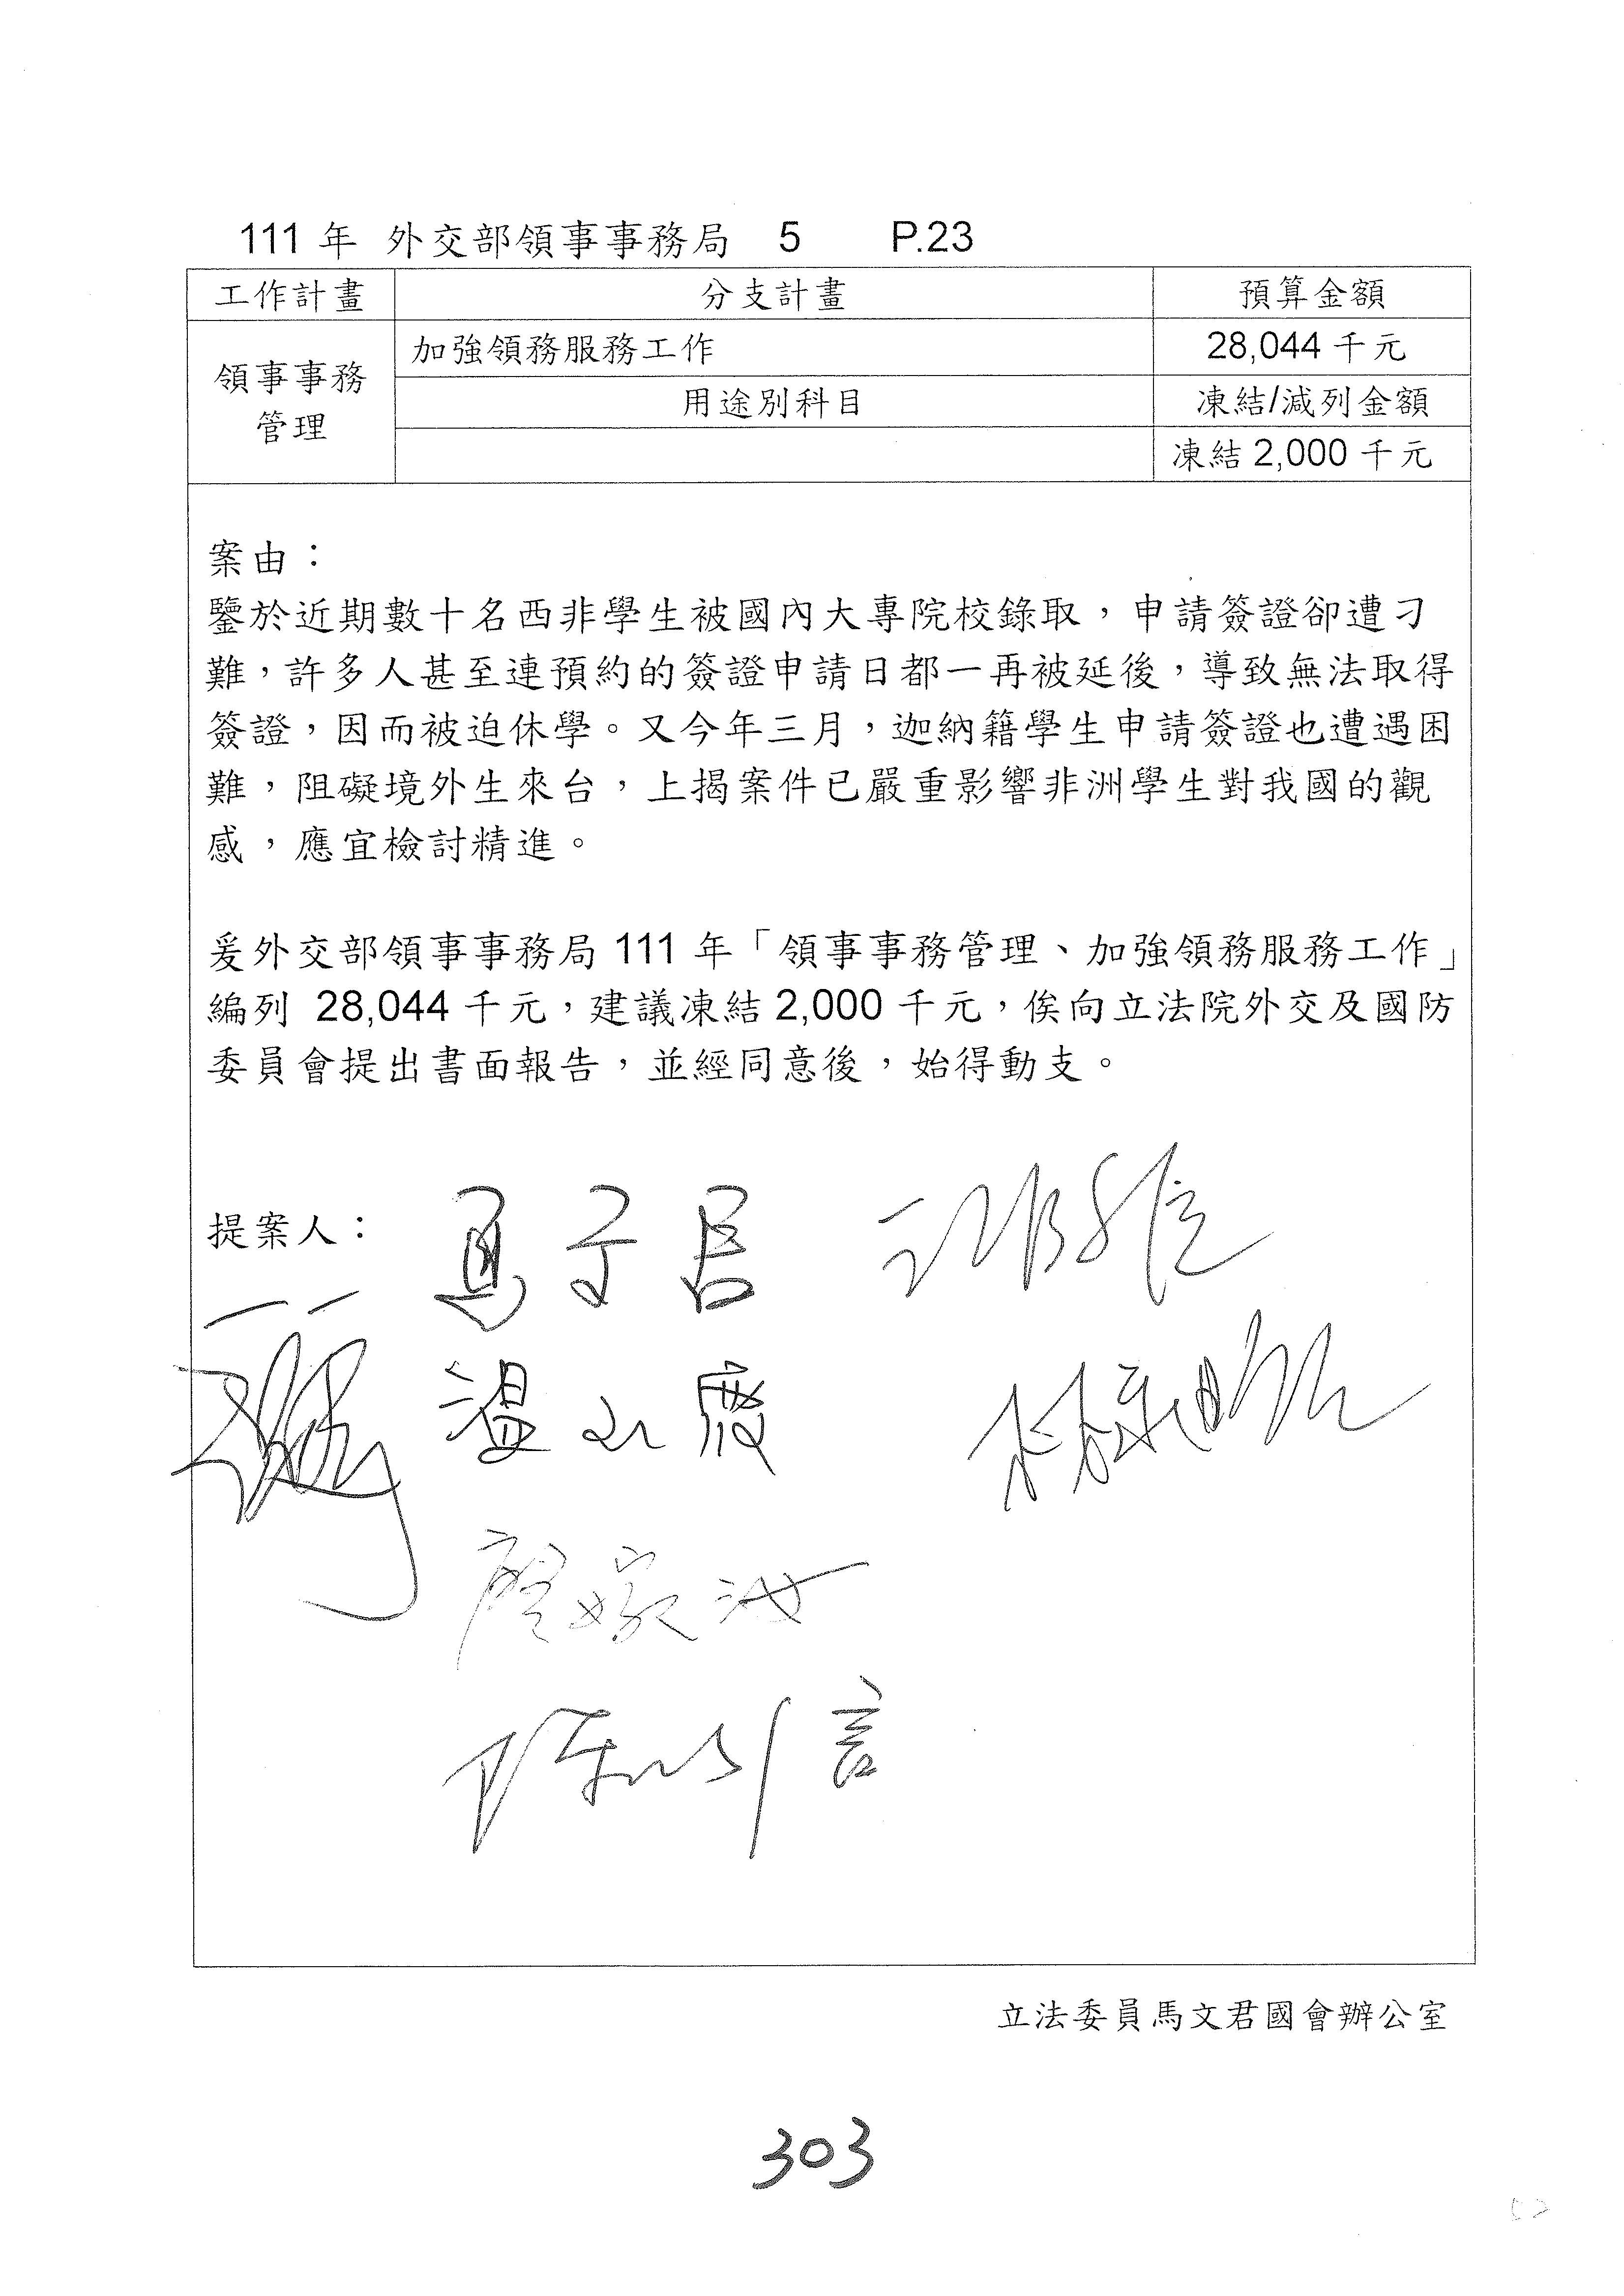 111 年 外交部領事事務局 5 P.23
工作計畫 分支計畫 預算金額
領事事務管理 加強領務服務工作 28,044 千元
用途別科目 凍結/減列金額
凍結 2,000 千元
案由：
鑒於近期數十名西非學生被國內大專院校錄取，申請簽證卻遭刁
難，許多人甚至連預約的簽證申請日都一再被延後，導致無法取得
簽證，因而被迫休學。又今年三月，迦納籍學生申請簽證也遭遇困
難，阻礙境外生來台，上揭案件已嚴重影響非洲學生對我國的觀
感，應宜檢討精進。
爰外交部領事事務局 111 年「領事事務管理、加強領務服務工作」
編列 28,044 千元，建議凍結 2,000 千元，俟向立法院外交及國防
委員會提出書面報告，並經同意後，始得動支。
提案人：
馬文君
溫玉霞
陳以信
立法委員馬文君國會辦公室
303